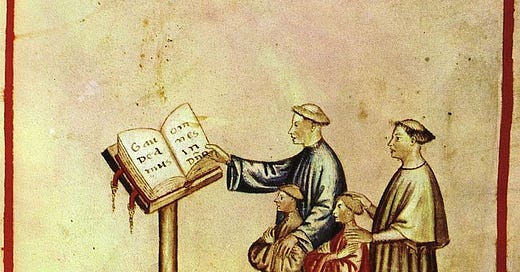 Gau
dea
mus
om
nes
in
dno